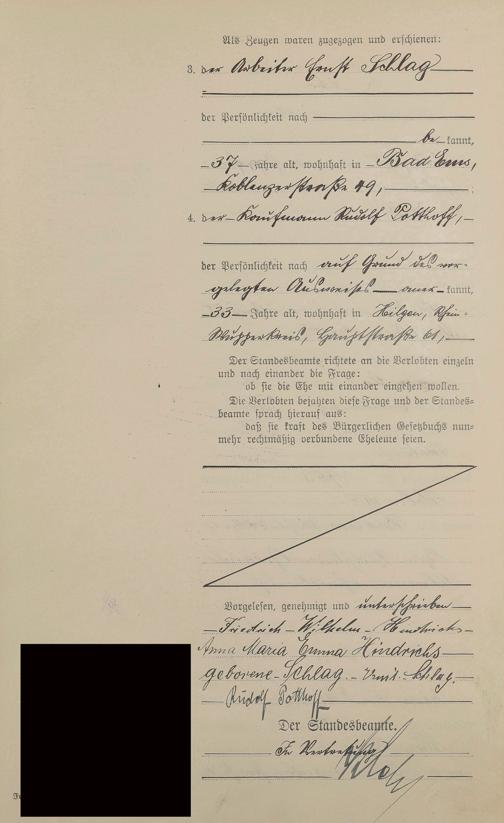 Als Zeugen waren zugezogen und erschienen:
3. der Arbeiter Ernst Schlag
der Persönlichkeit nach
be kannt,
37 Jahre alt, wohnhaft in Bad Ems,
Koblenzerstraße 49,
4. der Kaufmann Rudolf Potthoff,
der Persönlichkeit nach auf Grund des vor-
gelegten Ausweises aner kannt,
33 Jahre alt, wohnhaft in Hilgen, Rhein-
Wupperkreis, Hauptstraße 61,
Der Standesbeamte richtete an die Verlobten einzeln
und nach einander die Frage:
ob sie die Ehe mit einander eingehen wollen.
Die Verlobten bejahten diese Frage und der Standes=
beamte sprach hierauf aus:
daß sie kraft des Bürgerlichen Gesetzbuchs nun=
mehr rechtmäßig verbundene Eheleute seien.
Vorgelesen, genehmigt und unterschrieben
Friedrich Wilhelm Hindrichs
Anna Maria Emma Hindrichs
geborene Schlag. Schlag.
Rudolf Potthoff
Der Standesbeamte.
In Vertretung